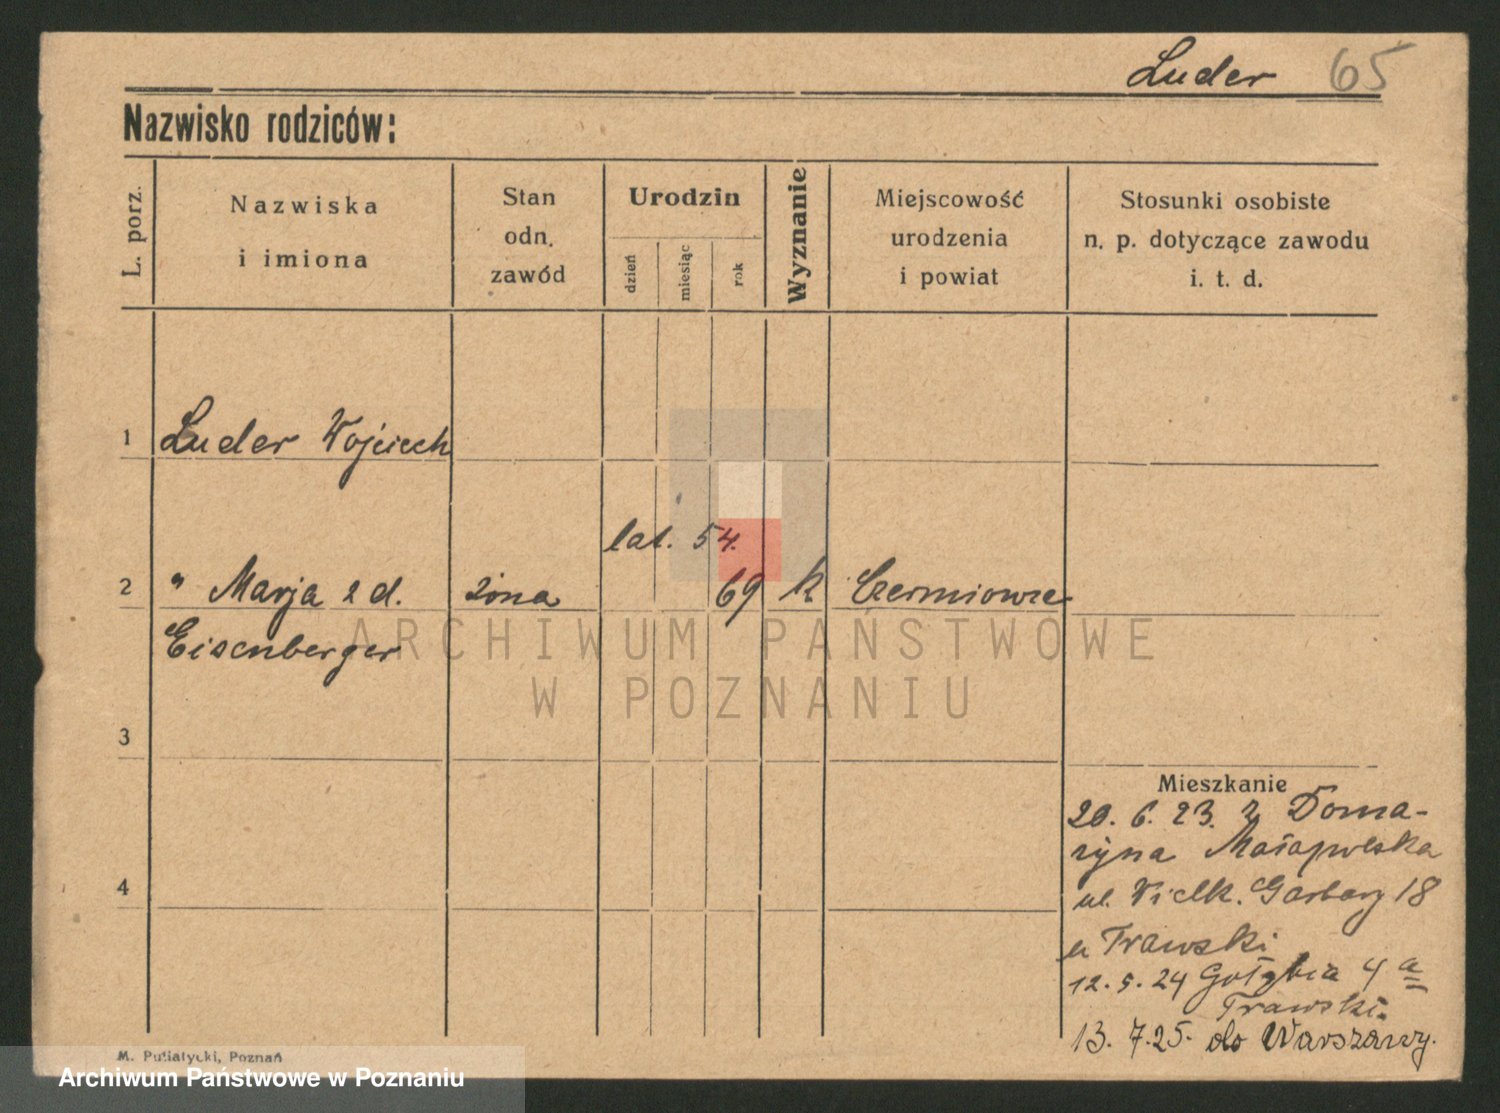 Luder 65
Nazwisko rodziców:
L. porz.
Nazwiska
i imiona
Stan
odn.
zawód
Urodzin
dzień
miesiąc
rok
Wyznanie
Miejscowość
urodzenia
i powiat
Stosunki osobiste
n. p. dotyczące zawodu
i. t. d.
1 Luder Wojciech
lat. 54.
2 " Marja z d. żona 69 k
Eisenberger
3
Mieszkanie
20. 6. 23. z Doma-
4
ul. Wielk. Garbary 18
u Trawski
12. 5. 24 Gołębia 4 a
Trawski.
13. 7. 25. do Warszawy.
M. Putiatycki, Poznań
ARCHIWUM PAŃSTWOWE
W POZNANIU
Archiwum Państwowe w Poznaniu